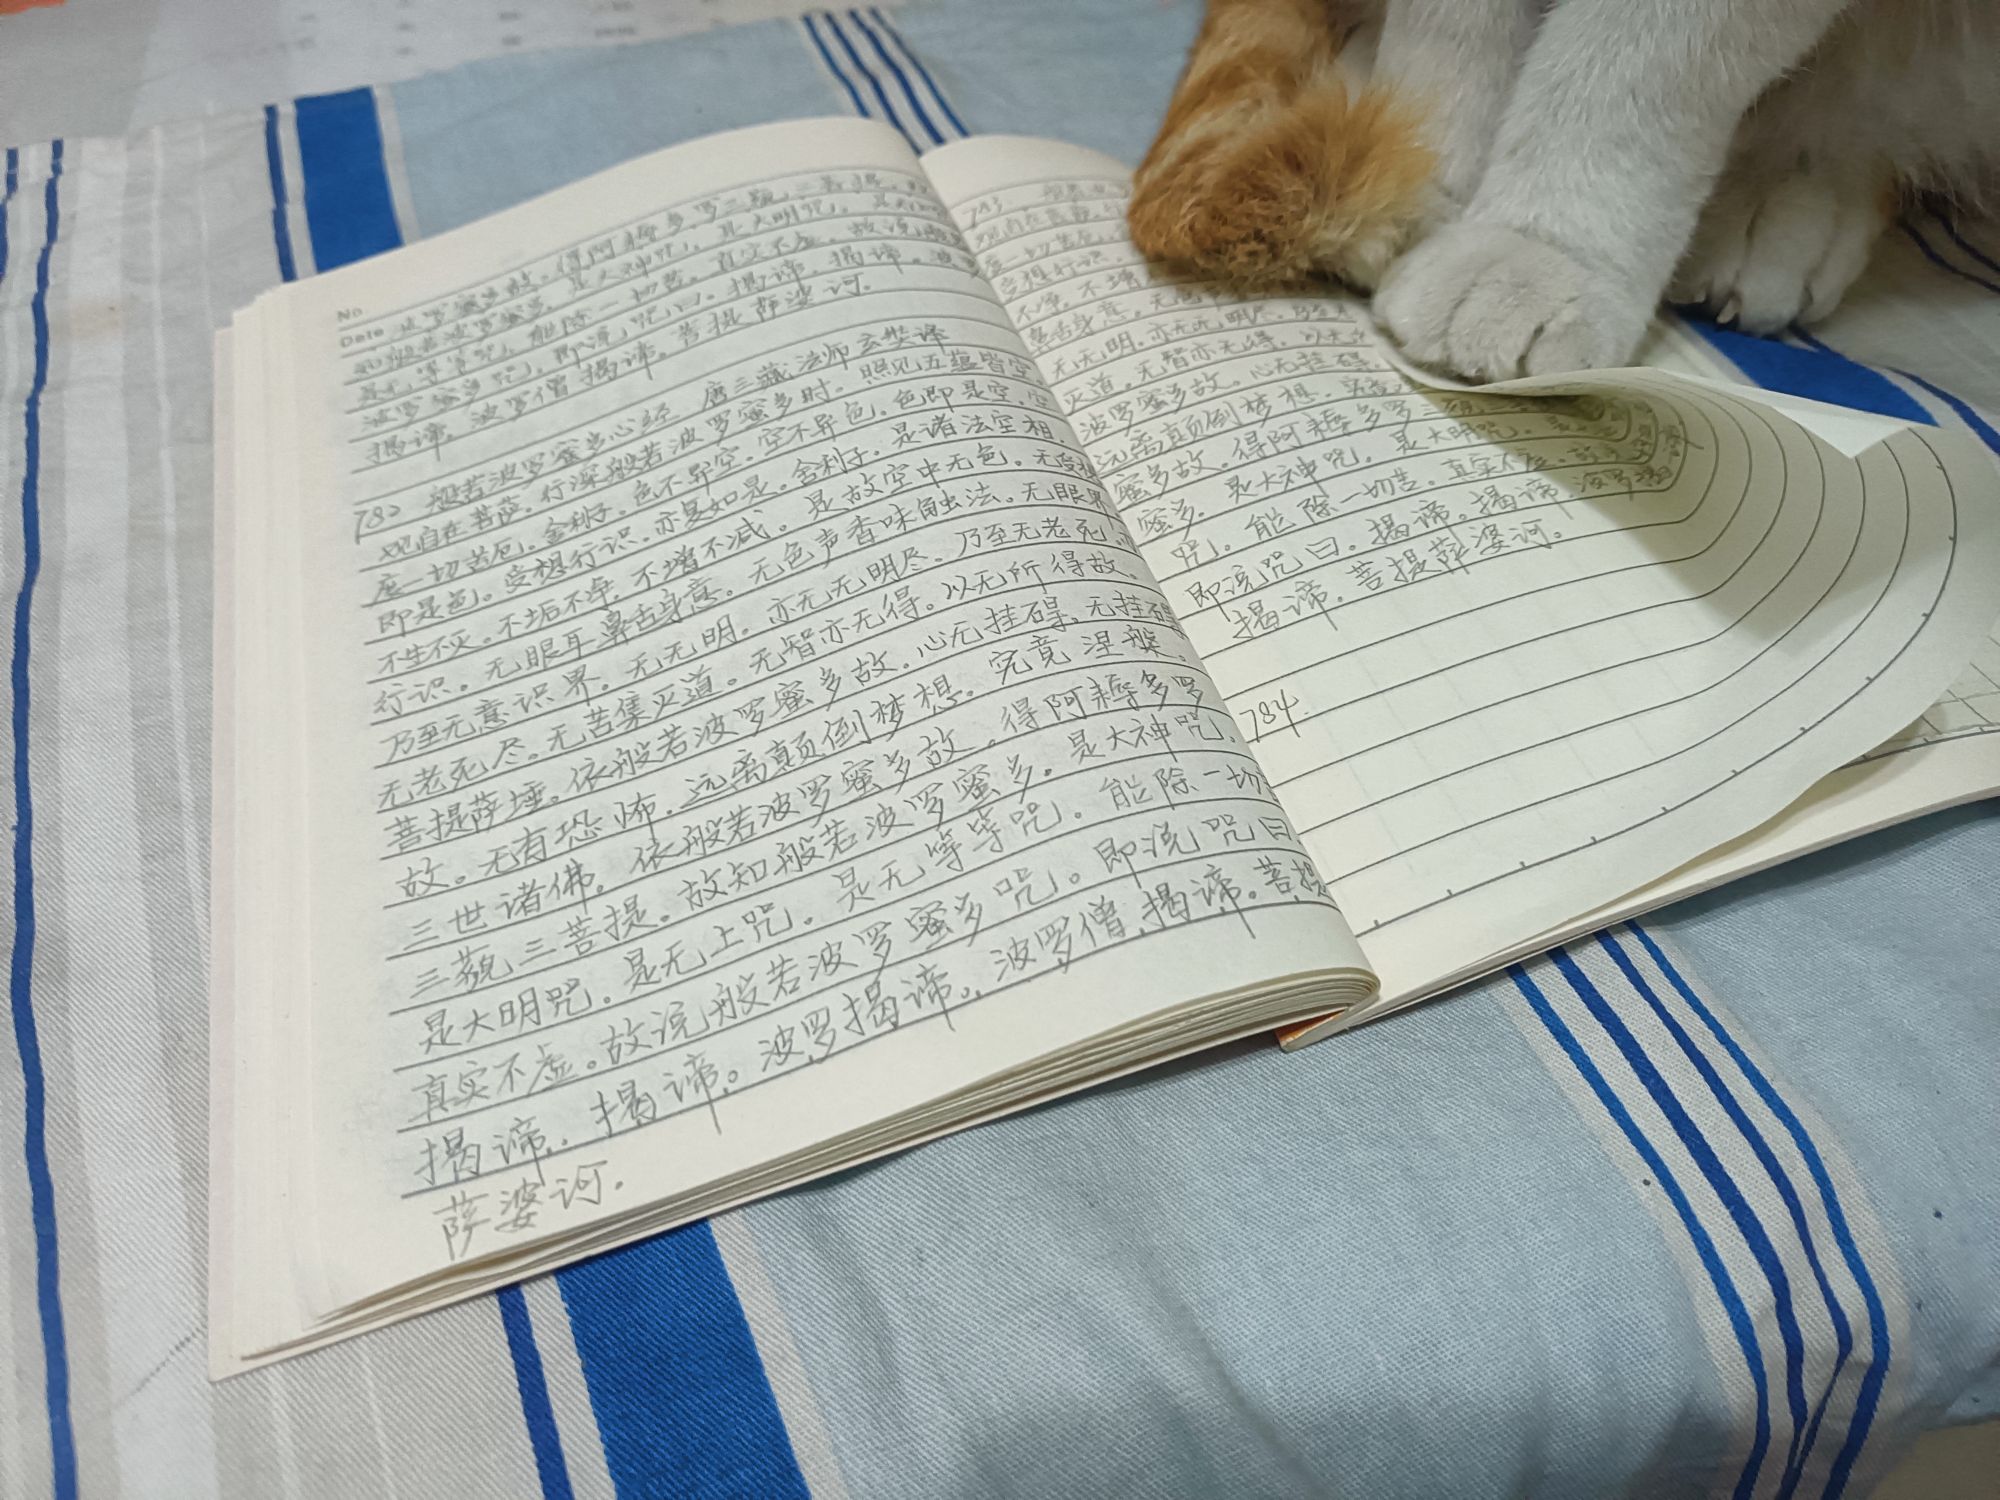 No
Date 波罗蜜多故。得阿耨多罗三藐三菩提。故
知般若波罗蜜多。是大神咒。是大明咒。是无上
是无等等咒。能除一切苦。真实不虚。故说般若
波罗蜜多咒。即说咒曰。揭谛。揭谛。波罗
揭谛。波罗僧揭谛。菩提萨婆诃.
782 般若波罗蜜多心经 唐三藏法师玄奘译
观自在菩萨。行深般若波罗蜜多时。照见五蕴皆空。
度一切苦厄。舍利子。色不异空。空不异色。色即是空。空
即是色。受想行识。亦复如是。舍利子。是诸法空相。
不生不灭。不垢不净。不增不减。是故空中无色。无受想
行识。无眼耳鼻舌身意。无色声香味触法。无眼界
乃至无意识界。无无明。亦无无明尽。乃至无老死。亦
无老死尽。无苦集灭道。无智亦无得。以无所得故。
菩提萨埵。依般若波罗蜜多故。心无挂碍。无挂碍
故。无有恐怖。远离颠倒梦想。究竟涅槃。
三世诸佛。依般若波罗蜜多故。得阿耨多罗
三藐三菩提。故知般若波罗蜜多。是大神咒。
是大明咒。是无上咒。是无等等咒。能除一切
真实不虚。故说般若波罗蜜多咒。即说咒曰
揭谛.揭谛。波罗揭谛。波罗僧揭谛。菩提
萨婆诃.
783. 般若
观自在菩萨.
度一切苦厄.
受想行识.
不净。不增
鼻舌身意。无色
无无明.亦无无明尽.乃至
灭道。无智亦无得.以无
波罗蜜多故。心无挂碍.
远离颠倒梦想.究竟
蜜多故。得阿耨多罗三藐三
蜜多.是大神咒.是大明咒.是
咒。能除一切苦。真实不虚.故
即说咒曰.揭谛.揭谛.波罗揭
揭谛.菩提萨婆诃.
784.